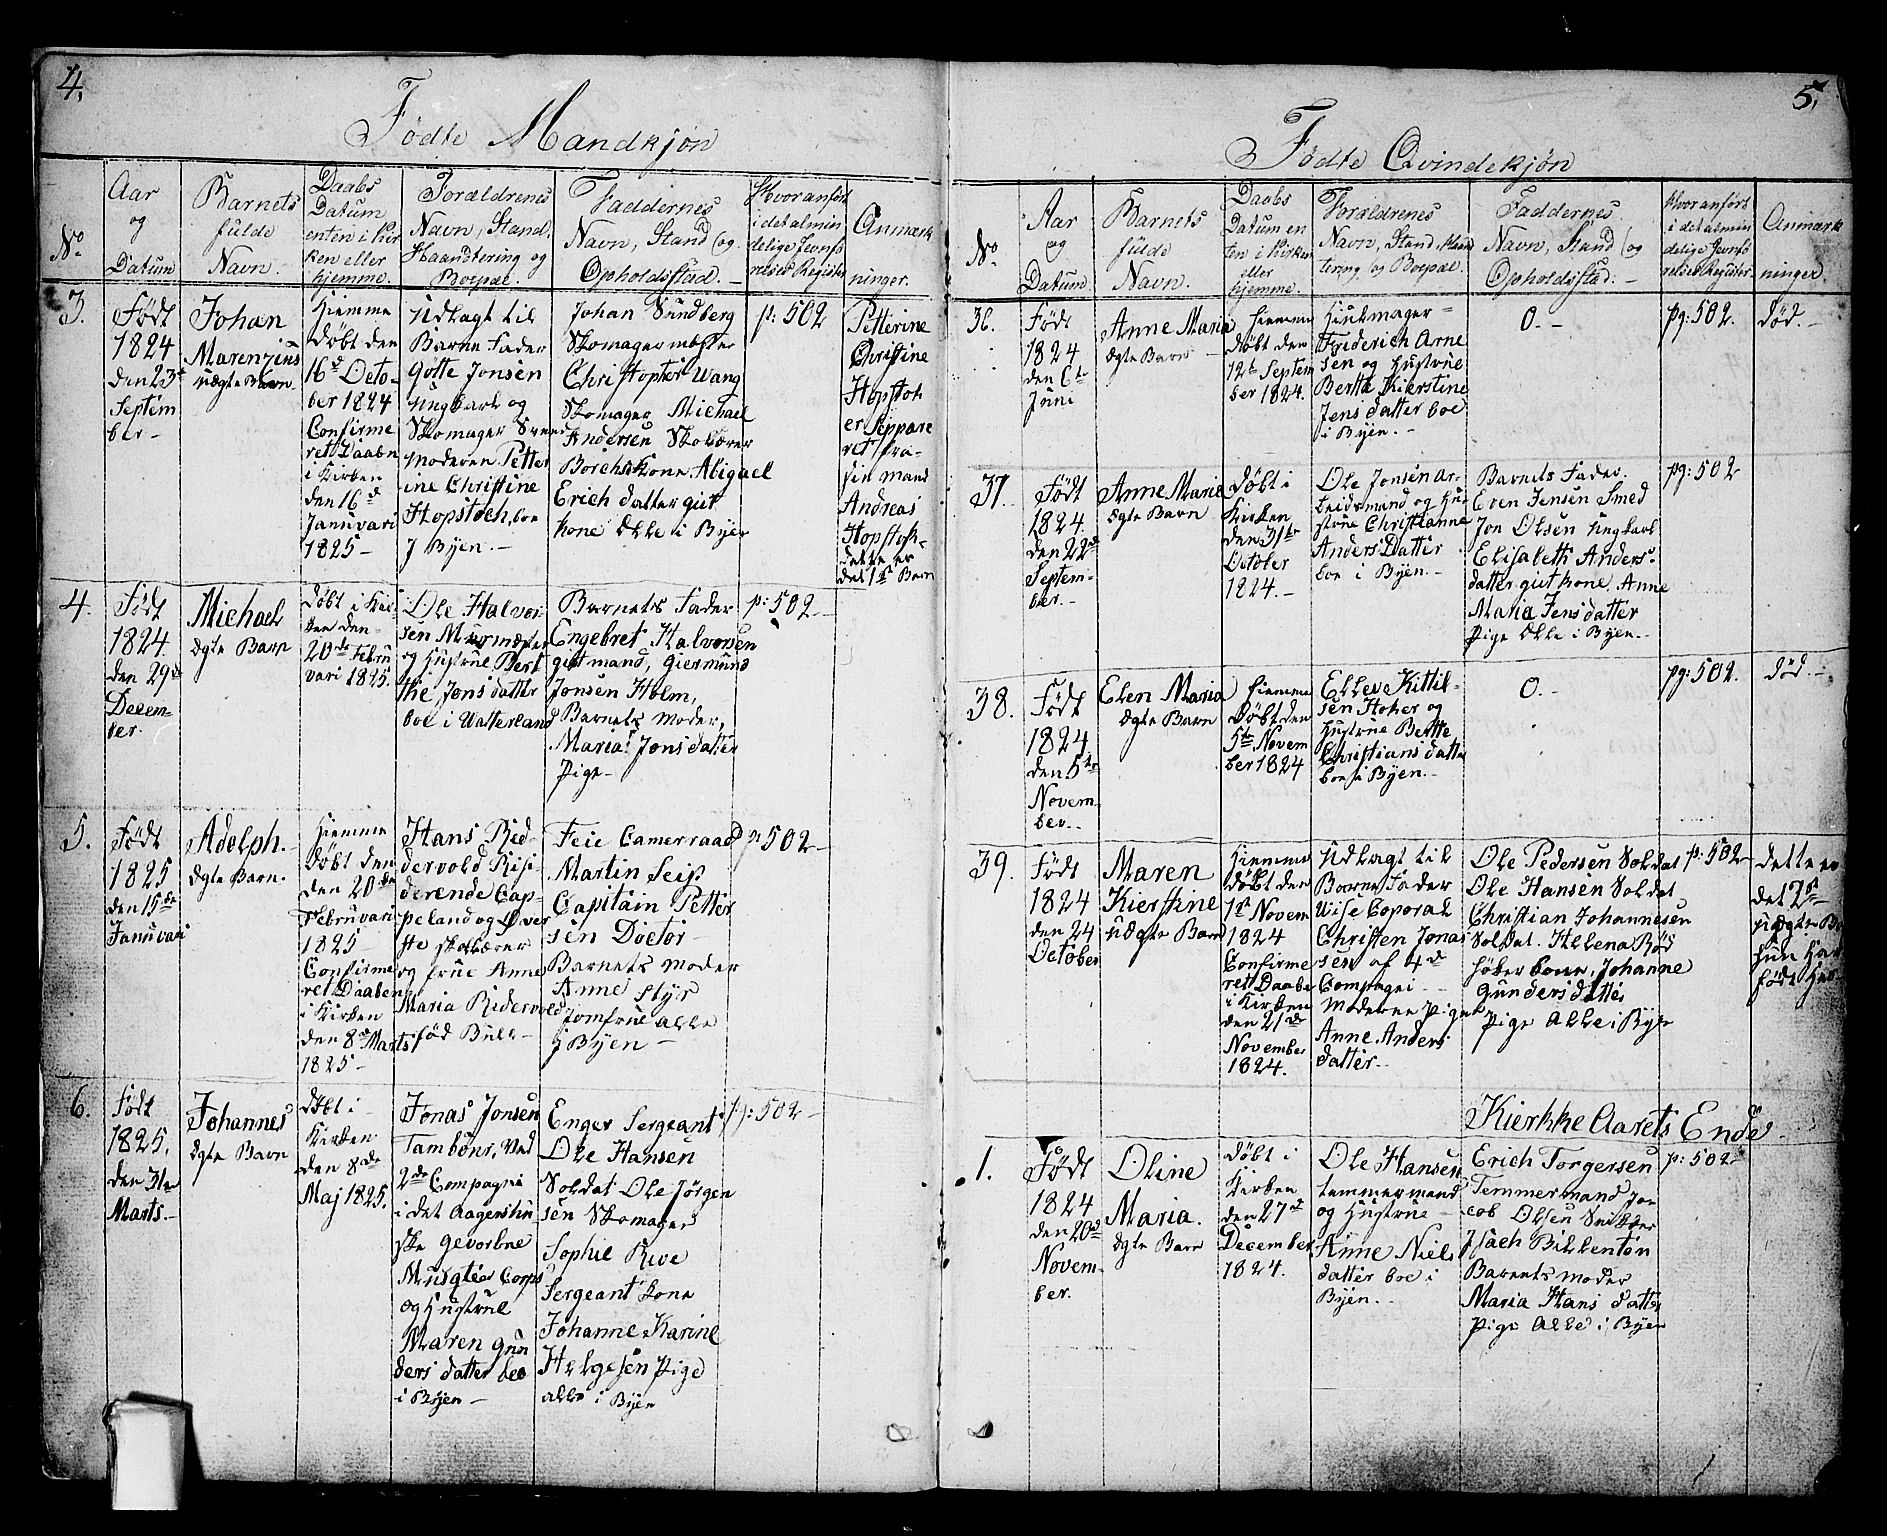 4.
Fødte Mandkjøn
No
Aar
og
Datum
Barnets
fulde
Navn.
Daabs
Datum
enten i Kir
ken eller
hjemme.
Forældrenes
Navn, Stand,
Haandtering og
Boepæl.
Faddernes
Navn, Stand og
Opholdsstad. -
Hvor anført
i det almin
delige Jevnfø
relses Register
Anmærk
ninger.
3.
Født
1824
den 23
Septem
ber -
Johan
Marenzius
uægte Barn.
Hiemme
Døbt den
16d Octo-
ber 1824
Confirme
ret Daabn
i Kirken
den 16d
Januvari
1825 -
Udlagt til
Barne Fader
Gotte Jonsen
ungkarl og
Skomager Svend
moderen Petter
ine Christine
Hopstoch, boe
J Byen. -
Johan Sundberg
Skomagermester
Christopher Wang
Skomager Michael
Andersen Skolærer
Borchs kone Abigael
Erich datter gift
kone Alle i Byen
p: 502
Petterine
Christine
Hopstoch
er Seppare
ret fra
sin mand
Andreas
Hopstoch
dette er
det 1st Barn
4.
Født
1824.
den 29de
Decem-
ber.
Michael
Ægte Barn
døbt i Kir-
ken den
20de Febru
vari 1825.
Ole Halvor
sen Murmæster
og Hustrue Bert
the Jons datter
boe i Watterland
Barnets Fader
Engebret Halvorsen
giftmand, Giermund
Jonsen Holm,
Barnets moder,
Maria Jonsdatter
Pige -
p: 502 -
5.
Født
1825
den 15de
Januvari
Adolph.
Ægte Barn.
Hiemme
Døbt den
den 20de
Februvari
1825 -
Confirme
ret Daaben
i Kirken
den 8de Marts
1825 -
Hans Rid-
dervold Resi-
derende Cap-
peland og Over
ste skolærer
og frue Anne
Maria Ridervold
fød Bull -
Feie Camerraad
Martin Seip
Capitain Petter
sen Doctor
Barnets moder
Anne Styr
Jomfrue alle
J Byen -
p: 502 -
6.
Født
1825.
den 31te
Marts. -
Johannes
Ægte Barn
Døbt i
Kirken
den 8de
Maj 1825.
Jonas Jonsen
Tambour, ved
2de Compagni
i det Aagershu
ske gevorbne
Musqteer Corps
og Hustrue
Maren Gun
ders datter boe
i Byen -
Enger Sergeant
Ole Hansen
Soldat Ole Jørgen
sen Skomager
Sophie Rive
Sergeant kone
Johanne Karine
Helgesen Pige
alle i Byen
pg: 502 -
5.
Fødte Qvindekjøn
No.
Aar
og
Datum
Barnets
fulde
Navn.
Daabs
Datum en
ten i Kirken
eller
hjemme.
Forældrenes
Navn, Stand, Haan
tering og Boepæl.
Faddernes
Navn, Stand og
Opholdsstad: -
Hvor anført
i det almin
delige Jevnfø
relses Register.
Anmærk
ninger.
36.
Født
1824
den 6te
Juni
Anne Maria
Ægte Barn -
Hiemme
Døbt den
12te Septem
ber 1824.
Hiulmager
Friderich Arne
sen og Hustrue
Berthe Kierstine
Jens datter boe
i Byen. -
0. -
pg: 502.
død. -
37.
Født
1824.
den 22de
Septem-
ber. -
Anne Marie
Ægte Barn
Døbt i
Kirken
den 31te
October
1824. -
Ole Jonsen Ar-
beidsmand og Hu-
strue Christianne
Anders Datter
boe i Byen. -
Barnets Fader.
Even Jensen Smed
Jon Olsen ungkarl
Elisabeth Anders-
datter gift kone, Anne
Maria Jensdatter
Pige Alle i Byen. -
pg: 502
38.
Født
1824
den 5te
Novem-
ber. -
Elen Maria
Ægte Barn
Hiemme
Døbt den
5te Novem
ber 1824
Elleve Kittil-
sen Hoker og
Hustrue Berthe
Christians datter
boe i Byen. -
0. -
pg: 502.
død. -
39.
Født
1824
den 24
October
Maren
Kierstine
uægte Barn
Hiemme
døbt den
1st Novem
1824
Confirme
ret Daabe
i Kirken
den 21de
November
1824.
Udlagt til
Barne Fader
Wise Coporal
Christen Jonas
sen af 4d
Compagni -
moderne Pige
Anne Anders
datter. -
Ole Pedersen Soldat
Ole Hansen Soldat
Christian Johannesen
Soldat. Hellena Rød
høker kone, Johanne
Gundersdatter
Pige Alle i Byen
p: 502 -
dette er
det 2de
uægte Ba
hun har
født her
Kierkke Aarets Ende
1.
Født
1824
den 20de
Novem-
ber.
Oline
Maria.
Ægte Barn
døbt i
Kirken
den 27d
December
1824.
Ole Hansen
tømmermand
og Hustrue -
Anne Niels
datter boe i
Byen. -
Erich Torgersen
Temmermand Ja-
cob Olsen Snikker
Isach Billenton
Barnets moder
Maria Hans datter
Pige Alle i Byen
p: 502 -